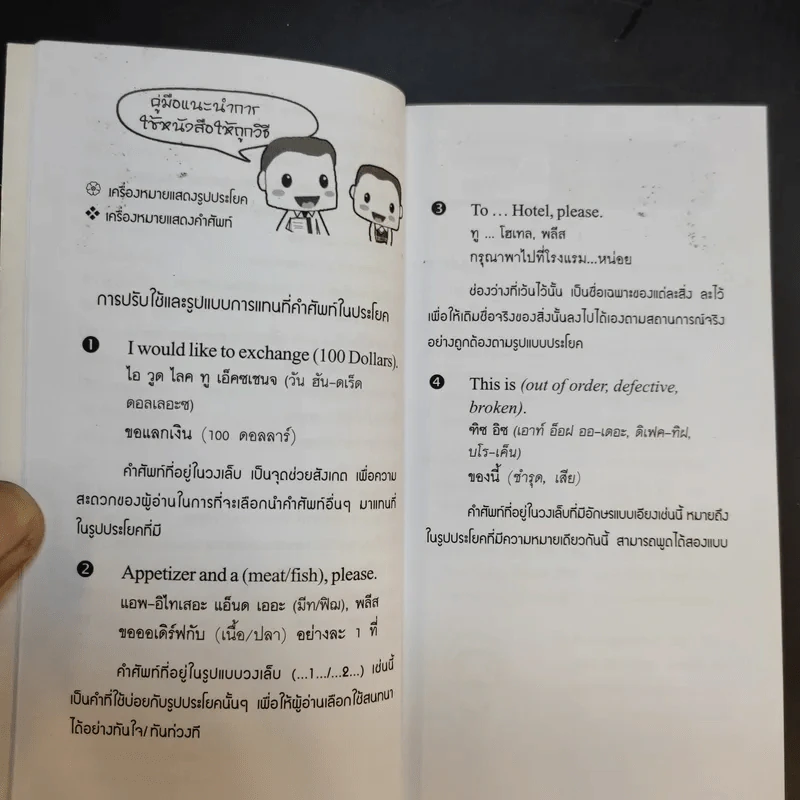 คู่มือแนะนำการ
ใช้หนังสือให้ถูกวิธี
เครื่องหมายแสดงรูปประโยค
❖ เครื่องหมายแสดงคำศัพท์
การปรับใช้และรูปแบบการแทนที่คำศัพท์ในประโยค
❶ I would like to exchange (100 Dollars).
ไอ วูด ไลค ทู เอ็คซเชนจ (วัน ฮัน-ดเร็ด
ดอลเลอะซ)
ขอแลกเงิน (100 ดอลลาร์)
คำศัพท์ที่อยู่ในวงเล็บ เป็นจุดช่วยสังเกต เพื่อความ
สะดวกของผู้อ่านในการที่จะเลือกนำคำศัพท์อื่นๆ มาแทนที่
ในรูปประโยคที่มี
❷ Appetizer and a (meat/fish), please.
แอพ-อิไทเสอะ แอ็นด เออะ (มีท/ฟิฌ), พลีส
ขอออเดิร์ฟกับ (เนื้อ/ปลา) อย่างละ 1 ที่
คำศัพท์ที่อยู่ในรูปแบบวงเล็บ (...1.../...2...) เช่นนี้
เป็นคำที่ใช้บ่อยกับรูปประโยคนั้นๆ เพื่อให้ผู้อ่านเลือกใช้สนทนา
ได้อย่างทันใจ/ทันท่วงที
❸ To ... Hotel, please.
ทู ... โฮเทล, พลีส
กรุณาพาไปที่โรงแรม...หน่อย
ช่องว่างที่เว้นไว้นั้น เป็นชื่อเฉพาะของแต่ละสิ่ง ละไว้
เพื่อให้เติมชื่อจริงของสิ่งนั้นลงไปได้เองตามสถานการณ์จริง
อย่างถูกต้องตามรูปแบบประโยค
❹ This is (out of order, defective,
broken).
ฑิซ อิซ (เอาท์ อ็อฝ ออ-เดอะ, ดิเฟค-ทิฝ,
บโร-เค็น)
ของนี้ (ชำรุด, เสีย)
คำศัพท์ที่อยู่ในวงเล็บที่มีอักษรแบบเอียงเช่นนี้ หมายถึง
ในรูปประโยคที่มีความหมายเดียวกันนี้ สามารถพูดได้สองแบบ